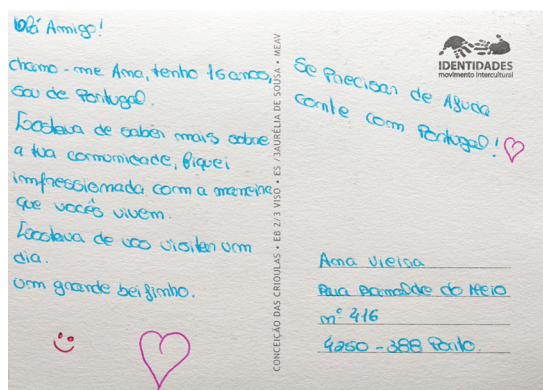 Olá Amigo!
chamo-me Ana, tenho 16 anos,
sou de Portugal.
Gostava de saber mais sobre
a tua comunidade, fiquei
impressionada com a maneira
que vocês vivem.
Gostava de vos visitar um
dia.
um grande beijinho.
CONCEIÇÃO DAS CRIOULAS • EB 2/3 VISO • ES /3AURÉLIA DE SOUSA • MEAV
IDENTIDADES
movimento intercultural
Se Precisar de Ajuda
conte com Portugal!
Ana Vieira
Rua do Meio
nº 416
4250-388 Porto.